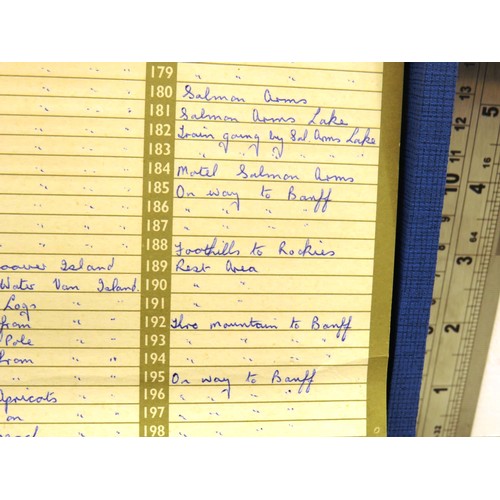 " " " 179 " " "
" " " 180 Salmon Arms
" " " 181 Salmon Arms Lake
" " " 182 Train going by Sal. Arms Lake
" " " 183 " " " " " "
" " 184 Motel Salmon Arms
" " 185 On way to Banff
" " 186 " " " "
" " 187 " " "
188 Foothills to Rockies
Island 189 Rest Area
Water Van Island. 190 " "
Logs 191 " "
from " " 192 Thro mountain to Banff
Pole 193 " " " "
from " " 194 " " " "
" " " 195 On way to Banff
Apricots 196 " " " "
on " " 197 " " "
198 " " "
13
12
11
10
9
8
5
4
3
2
1
16
64
32